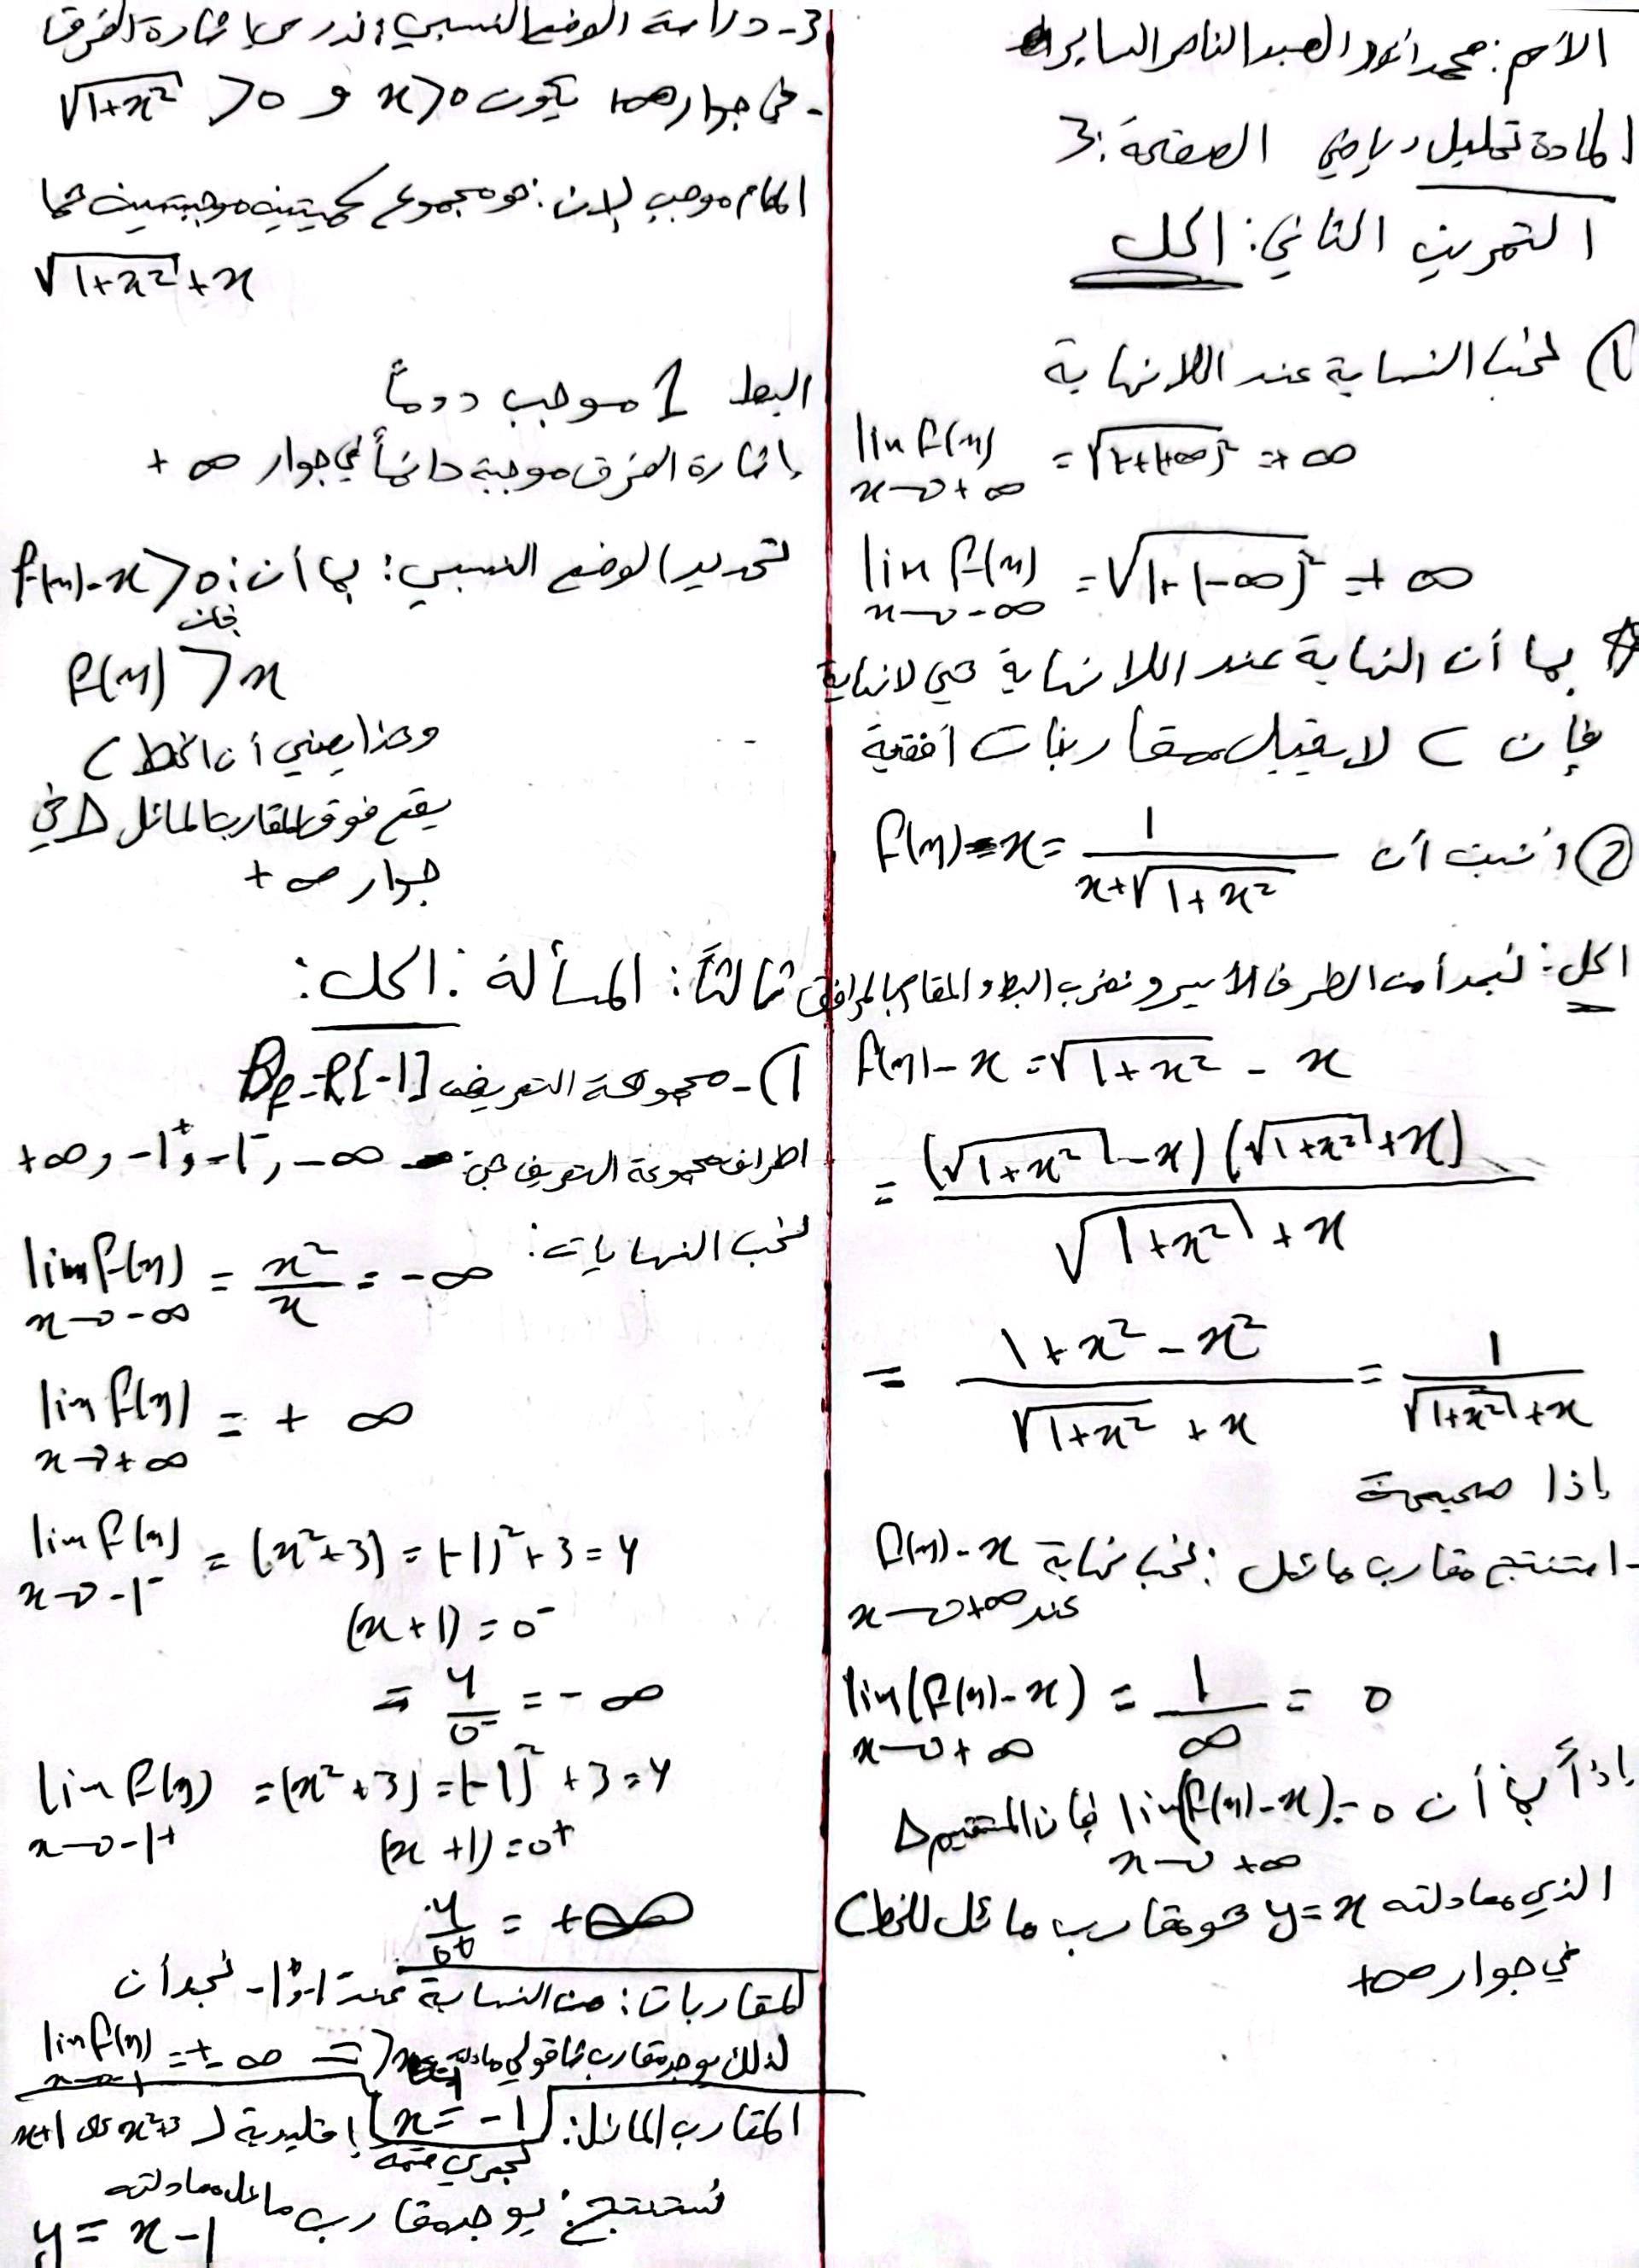 الأسم: محمد أنور العبد الناصر الساير
المادة تحليل رياضي الصفحة: 3
التمرين الثاني: الحل
1) نحسب النهاية عند اللانهاية
lim f(x) = √1+(+∞)² = +∞
x→+∞
lim f(x) = √1+(-∞)² = +∞
x→-∞
بما أن النهاية عند اللانهاية هي لانهاية
فإن C لا يقبل مقاربات أفقية
2) أثبت أن f(x)-x = 1/(x+√1+x²)
الحل: نبدأ من الطرف الأيسر ونضرب البسط والمقام بالمرافق
f(x)-x = √1+x² - x
= (√1+x² - x)(√1+x² + x) / (√1+x² + x)
= (1+x²-x²)/(√1+x² + x) = 1/(√1+x² + x)
إذا صحيحة
- استنتج مقارب مائل: نحسب نهاية f(x)-x
عند x→+∞
lim(f(x)-x) = 1/∞ = 0
x→+∞
إذاً بما أن lim(f(x)-x)=0 فإن المستقيم Δ
x→+∞
الذي معادلته y=x هو مقارب مائل للخط C
في جوار +∞
3- دراسة الوضع النسبي: ندرس إشارة الفرق
- في جوار +∞ يكون x>0 و √1+x² >0
المقام موجب لإن: هو مجموع كميتين موجبتين هما
√1+x² + x
البسط 1 موجب دوماً
إشارة الفرق موجبة دائماً في جوار +∞
تحديد الوضع النسبي: بما أن: f(x)-x>0
فإن
f(x) > x
وهذا يعني أن الخط C
يقع فوق المقارب المائل Δ في
جوار +∞
ثالثاً: المسألة: الحل:
1)- مجموعة التعريف Df=R{-1}
اطراف مجموعة التعريف هي: -∞ , -1⁻ , -1⁺ , +∞
نحسب النهايات:
lim f(x) = x²/x = -∞
x→-∞
lim f(x) = +∞
x→+∞
lim f(x) = (x²+3) = (-1)²+3 = 4
x→-1⁻
(x+1) = 0⁻
= 4/0⁻ = -∞
lim f(x) = (x²+3) = (-1)²+3 = 4
x→-1⁺
(x+1) = 0⁺
4/0⁺ = +∞
المقاربات: من النهاية عند -1⁻ و -1⁺ نجد أن
lim f(x) = ±∞ ⇒ لذلك يوجد مقارب شاقولي معادلته
x→-1
x = -1
المقارب المائل: نجري قسمة إقليدية لـ x²+3 على x+1
نستنتج: يوجد مقارب مائل معادلته
y = x-1